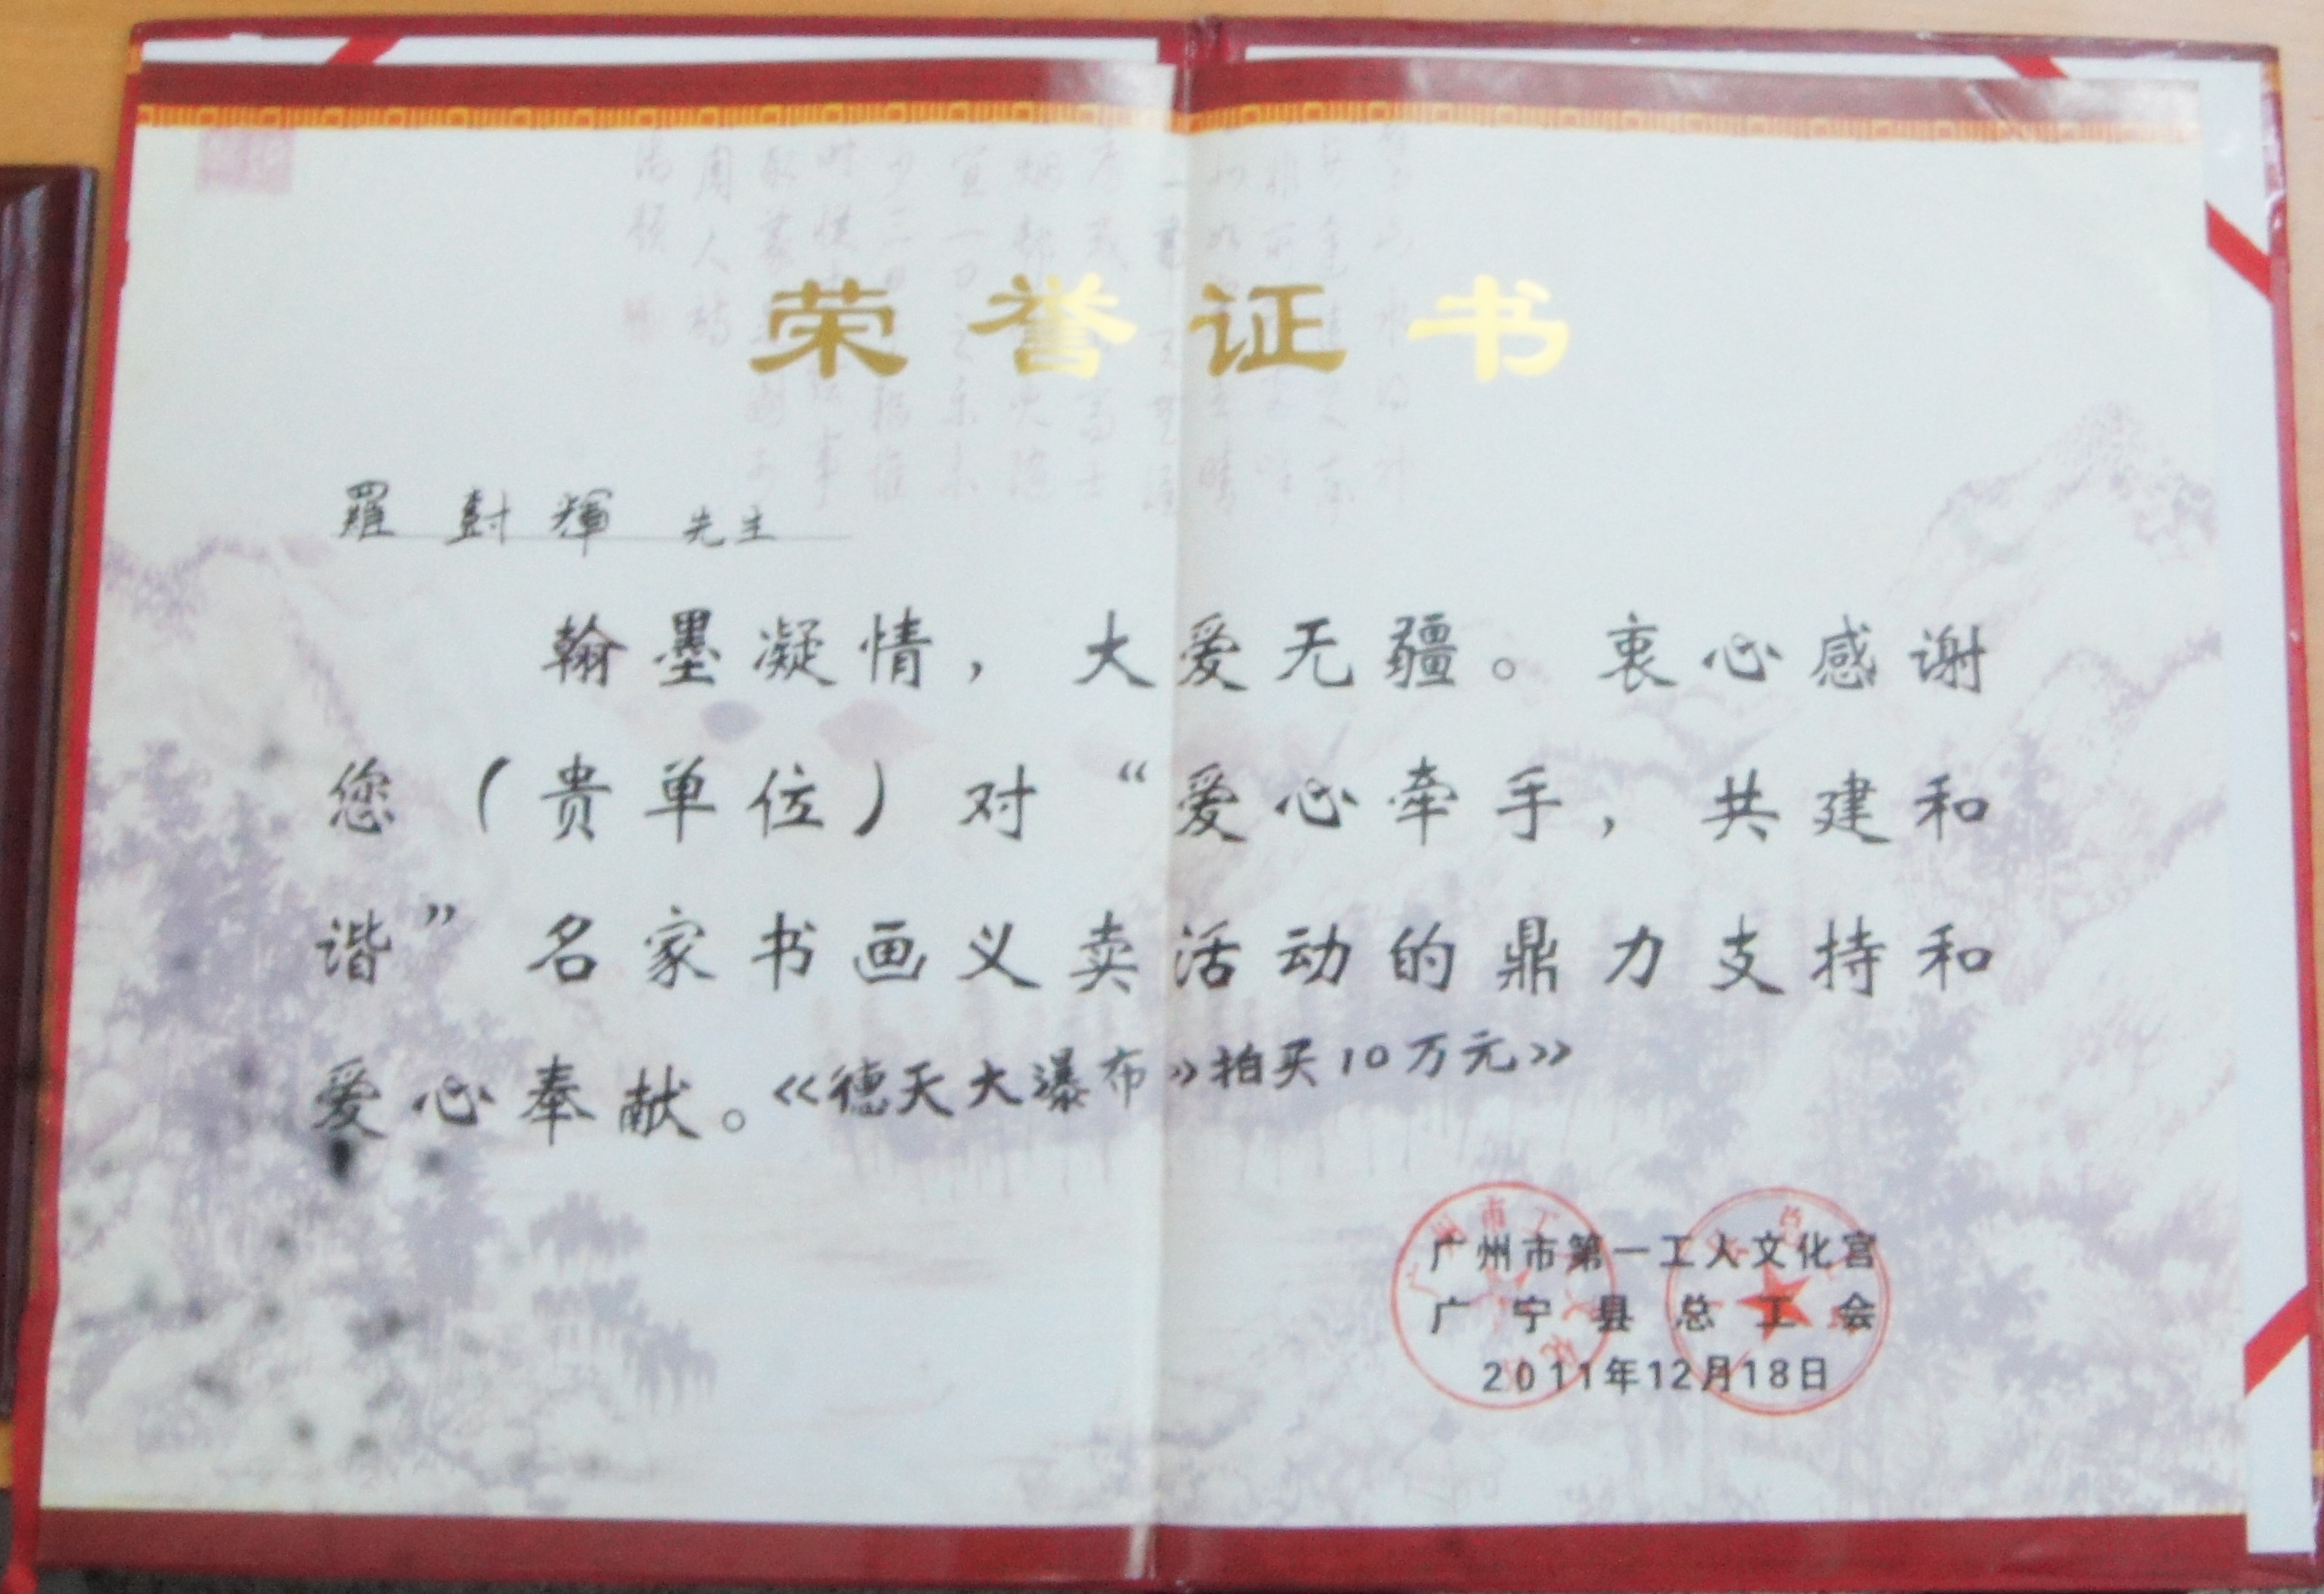 荣誉证书
羅 輝 先生
翰墨凝情，大爱无疆。衷心感谢
您（贵单位）对“爱心牵手，共建和
谐”名家书画义卖活动的鼎力支持和
爱心奉献。《德天大瀑布》拍买10万元》
广州市第一工人文化宫
广宁县总工会
2011年12月18日